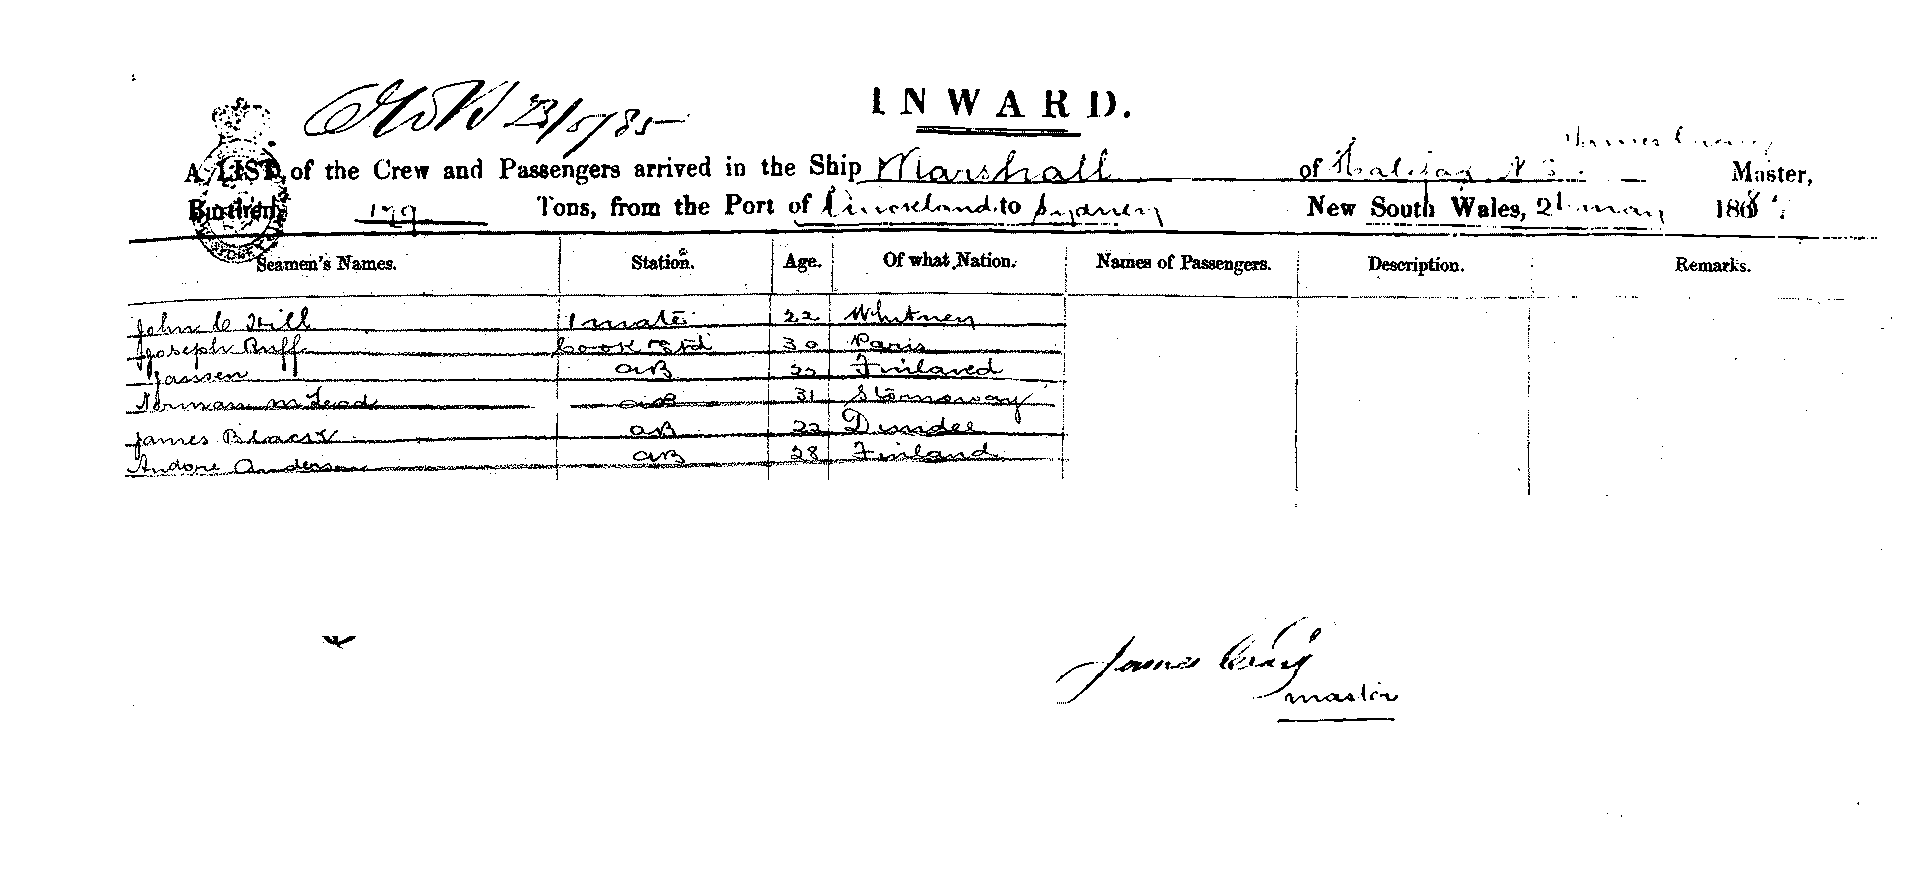 23/5/85
INWARD.
A LIST of the Crew and Passengers arrived in the Ship Marshall of Halifax N S James Craig Master,
Burthen 179 Tons, from the Port of to Sydney New South Wales, 21 May 188
Seamen's Names. Station. Age. Of what Nation. Names of Passengers. Description. Remarks.
John C Hill 1 mate 22 Whitney
Joseph Ruff Cook & Std 30 Paris
Janssen AB 22 Finland
Norman McLeod AB 31 Stornoway
James Black AB 22 Dundee
Andore Anderson AB 28 Finland
James Craig
master